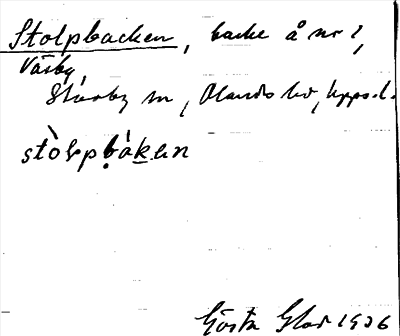 Stolpbacken, backe å nr 1,
Väsby,
Stavby sn, Olands hd, Upps.l.
stòlpbáken
Gösta Glad 1936